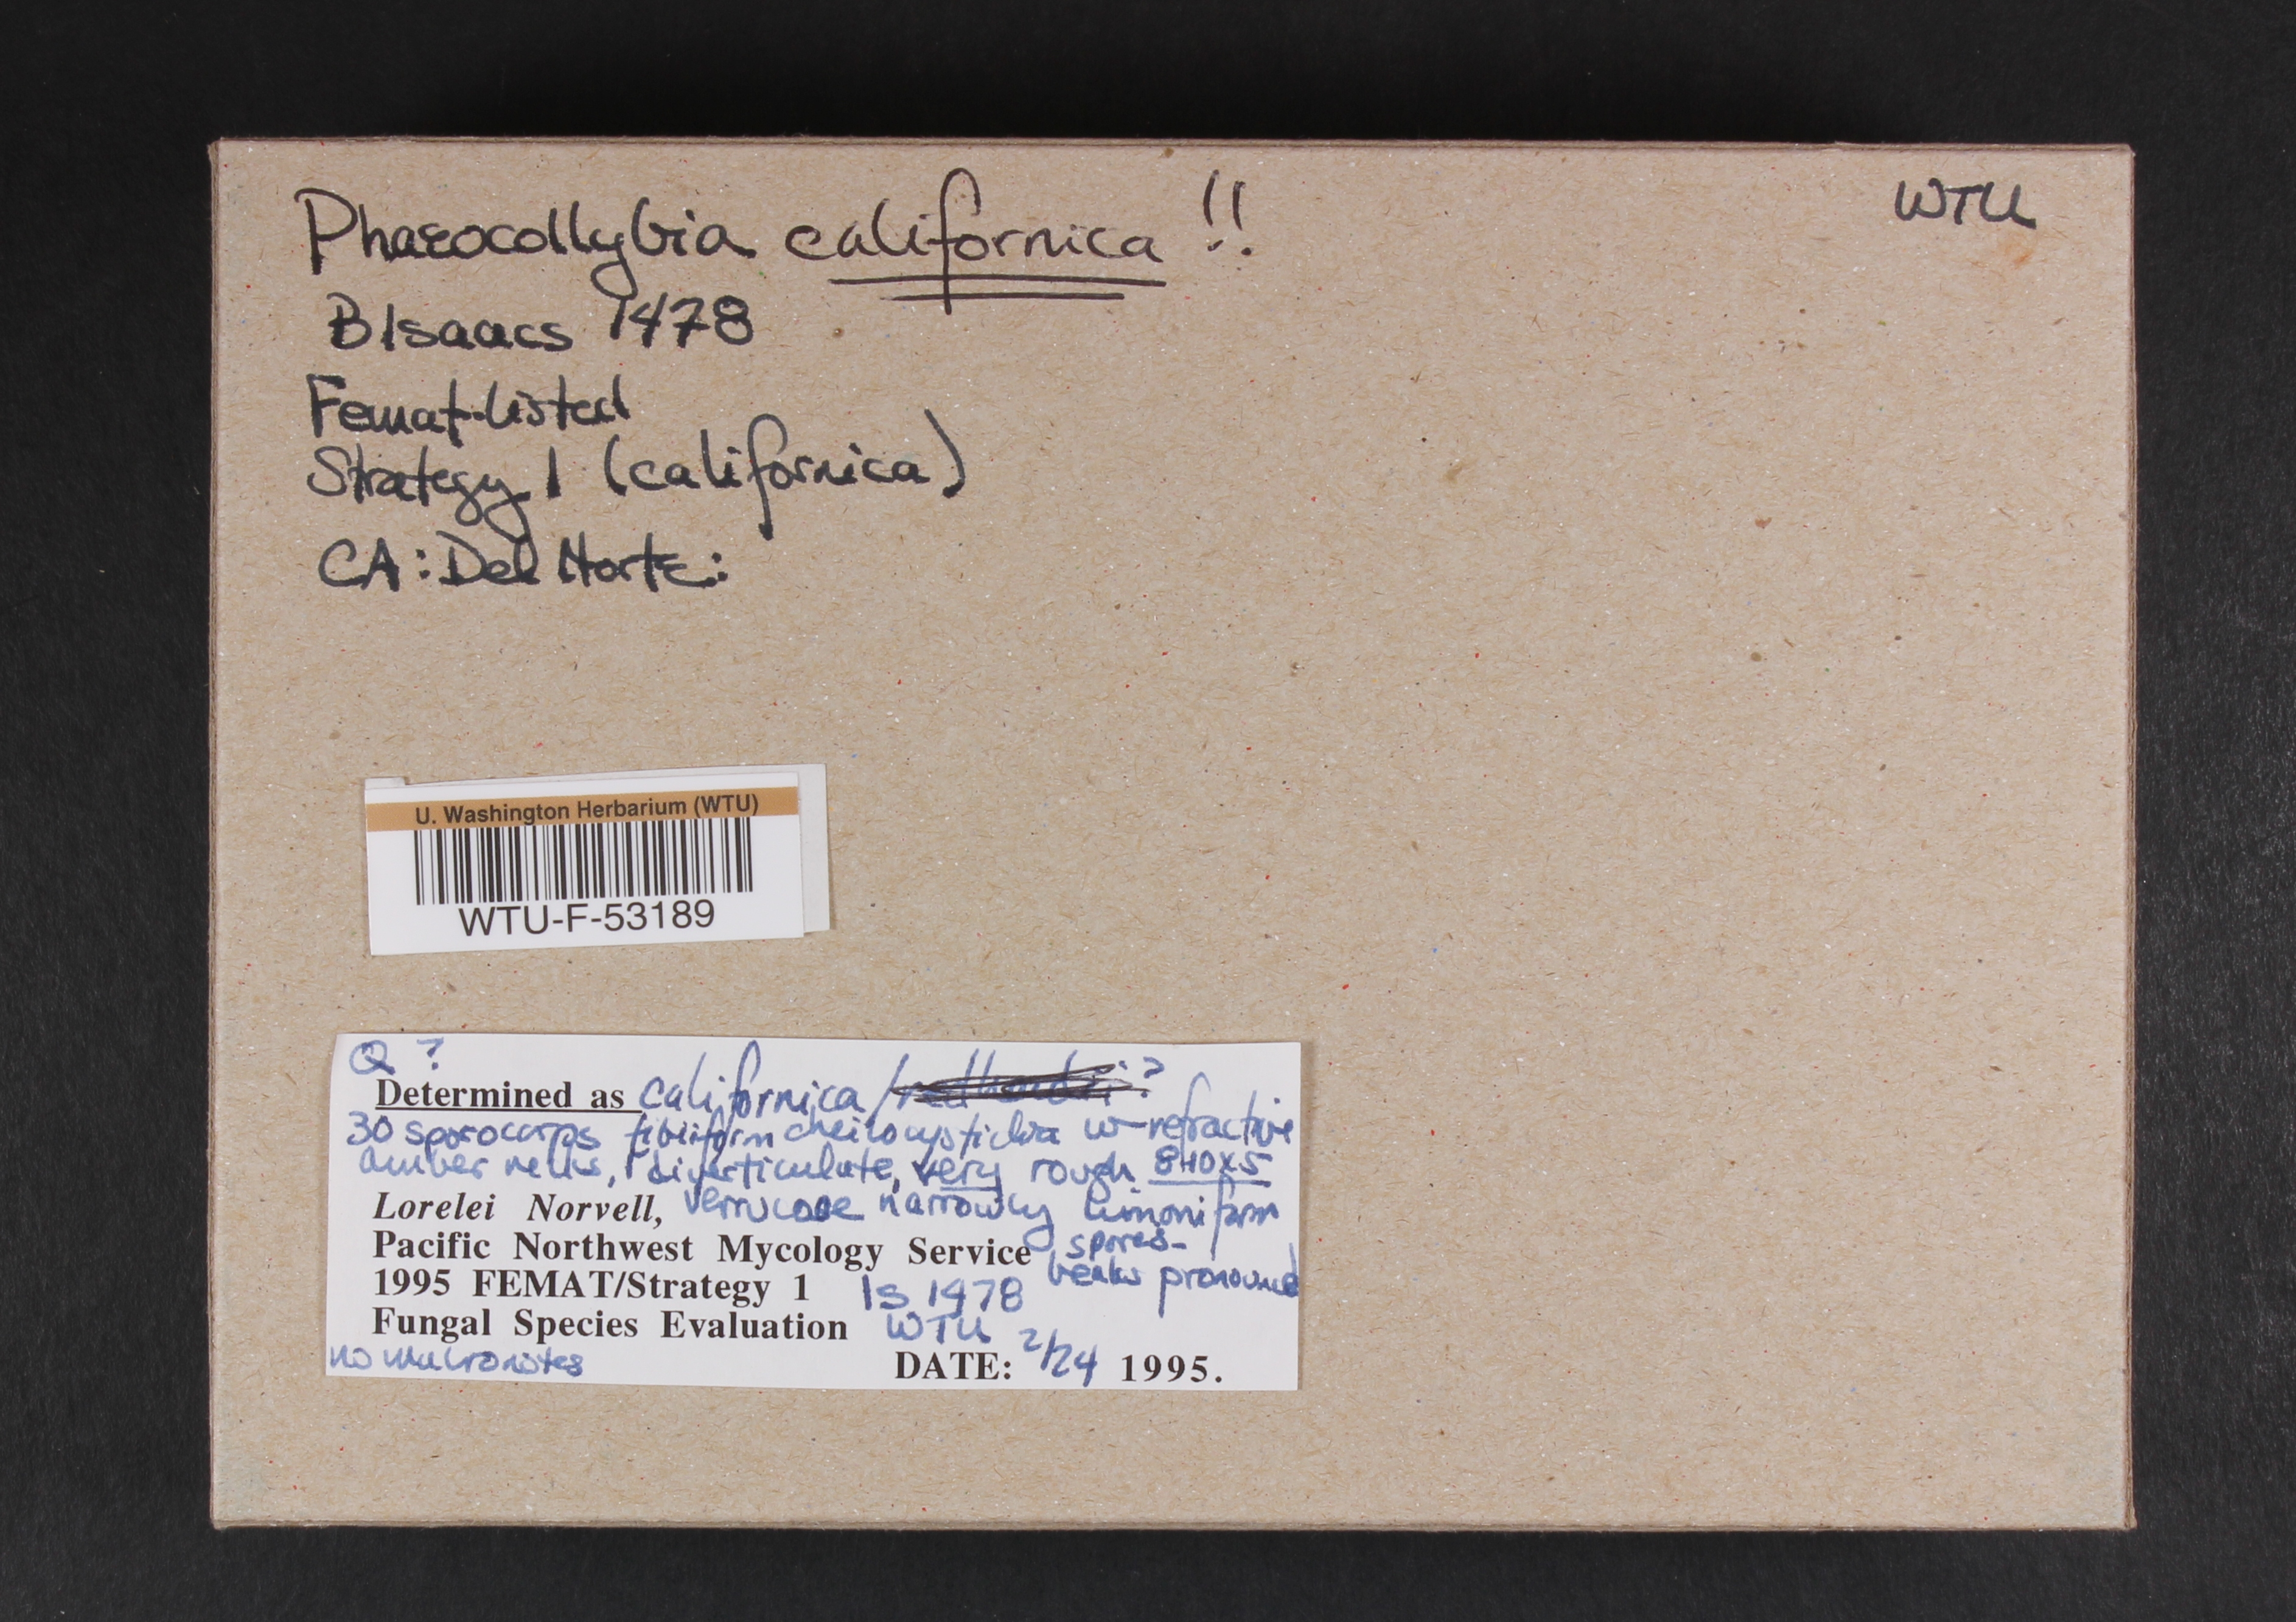 Phaeocollybia californica !!
WTU
B Isaacs 1478
Femat-listed
Strategy 1 (californica)
CA: Del Norte:
U. Washington Herbarium (WTU)
WTU-F-53189
Q ?
Determined as californica / ?
30 sporocarps tibiiform cheilocystidia w-refractive
amber necks, diverticulate, very rough 8-10x5
Lorelei Norvell, verrucose narrowly limoniform
Pacific Northwest Mycology Service spores-
beaks pronounced
1995 FEMAT/Strategy 1 Is 1478
Fungal Species Evaluation WTU
no macronotes
DATE: 2/24 1995.